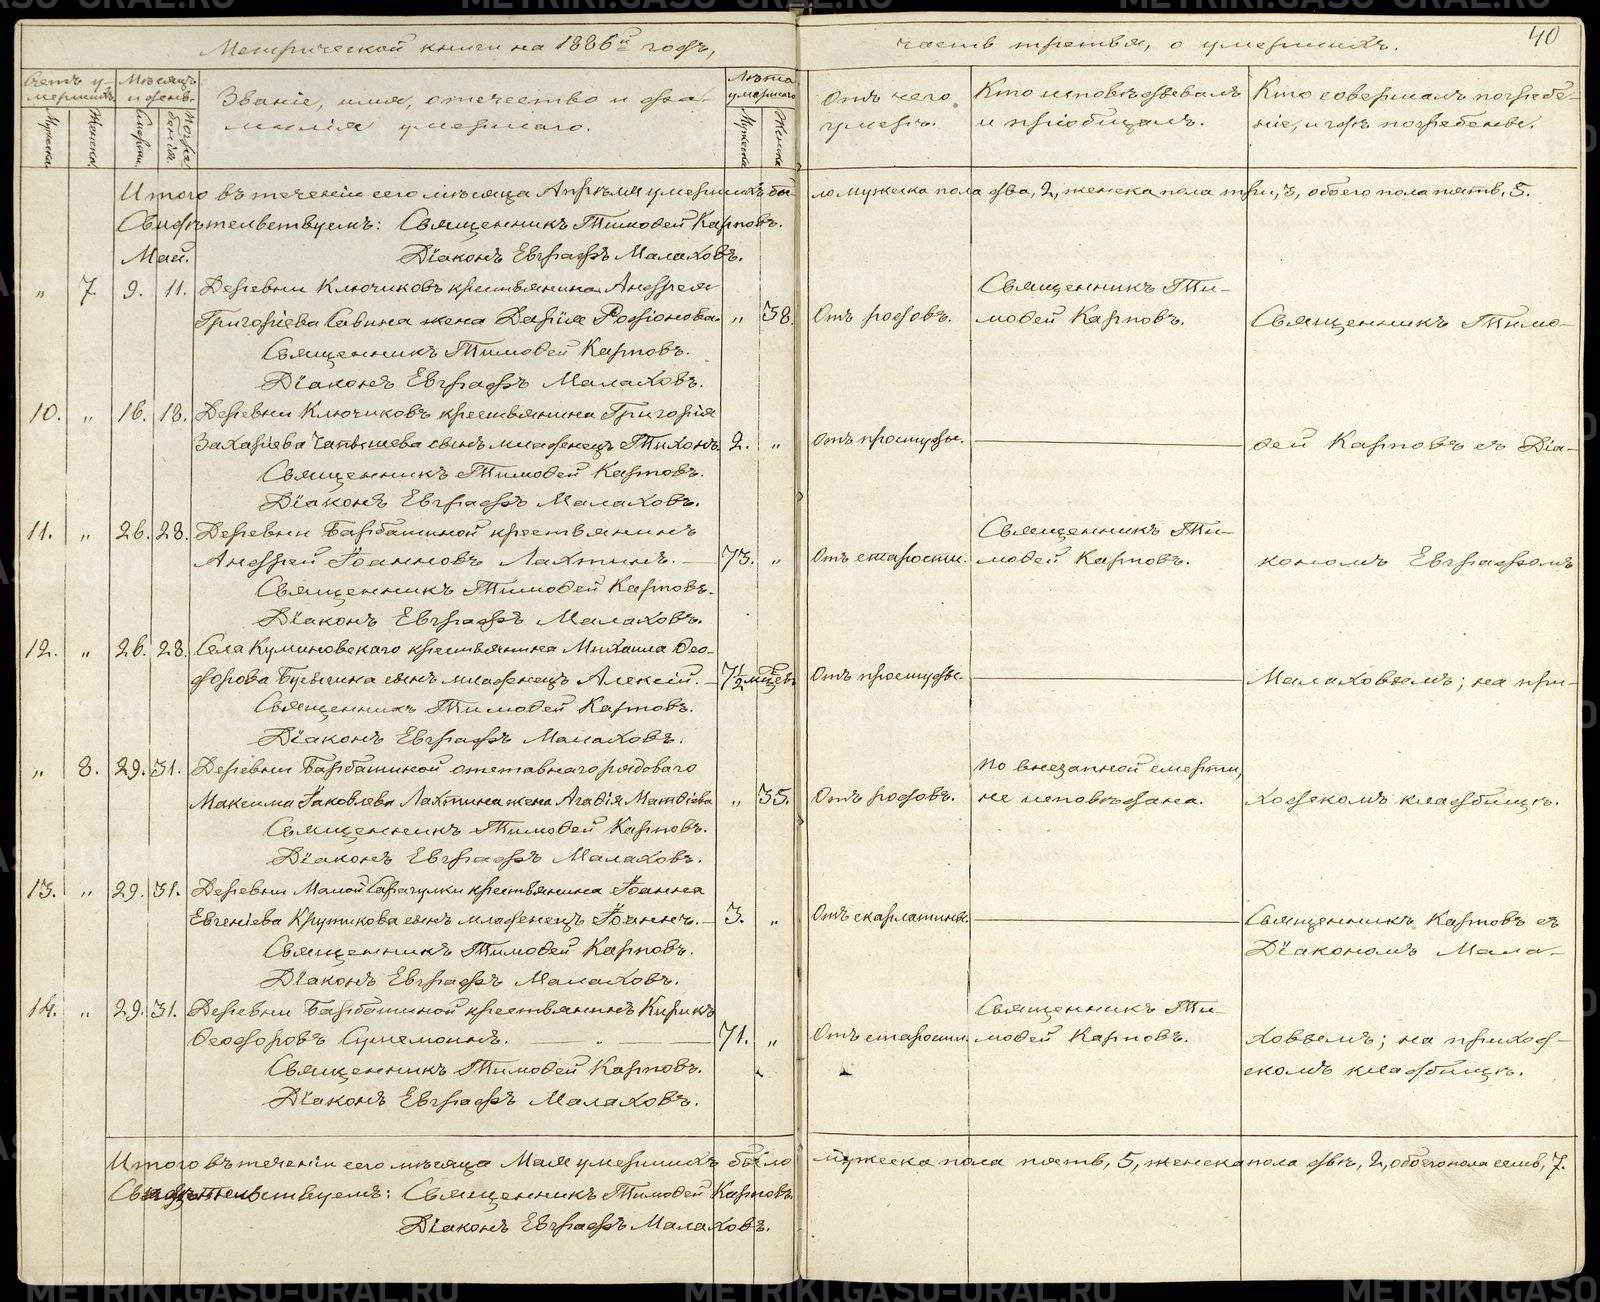 Метрической книги на 1886й годъ,
часть третья, о умершихъ.
40
Счетъ умершихъ.
Мужеска.
Женска.
Мѣсяцъ и день.
Смерти.
Погребенія.
Званіе, имя, отечество и фамилія умершаго.
Лѣта умершаго
Мужеска
Женска
Отъ чего умеръ.
Кто исповѣдывалъ и пріобщалъ.
Кто совершалъ погребеніе, и гдѣ погребены.
Итого въ теченіи сего мѣсяца Апрѣля умершихъ было мужеска пола два, 2, женска пола три, 3, обоего пола пять, 5.
Свидѣтельствуемъ: Священникъ Тимоѳей Карповъ.
Май. Діаконъ Евграфъ Малаховъ.
Священникъ Ти-
„ 7. 9. 11. Деревни Ключиковъ крестьянина Андрея
Григоріева Савина жена Дарія Родіонова. „ 38. Отъ родовъ. моѳей Карповъ. Священникъ Тимо-
Священникъ Тимоѳей Карповъ.
Діаконъ Евграфъ Малаховъ.
10. „ 16. 18. Деревни Ключиковъ крестьянина Григорія
Захаріева сынъ младенецъ Тихонъ. 2. „ Отъ простуды. ѳей Карповъ съ Діа-
Священникъ Тимоѳей Карповъ.
Діаконъ Евграфъ Малаховъ.
11. „ 26. 28. Деревни Барбашиной крестьянинъ Священникъ Ти-
Андрей Іоанновъ Лахтинъ. 73. „ Отъ старости. моѳей Карповъ. кономъ Евграфомъ
Священникъ Тимоѳей Карповъ.
Діаконъ Евграфъ Малаховъ.
12. „ 26. 28. Села Кумановскаго крестьянина Михаила Ѳео-
дорова сынъ младенецъ Алексій. 7½ мѣсцевъ Отъ простуды. Малаховымъ; на при-
Священникъ Тимоѳей Карповъ.
Діаконъ Евграфъ Малаховъ.
По внезапной смерти,
„ 8. 29. 31. Деревни Барбашиной отставнаго рядоваго
Максима Іаковлева Лахтина жена Агаѳія Матѳіева „ 35. Отъ родовъ. не исповѣдана. ходскомъ кладбищѣ.
Священникъ Тимоѳей Карповъ.
Діаконъ Евграфъ Малаховъ.
13. „ 29. 31. Деревни Малой Сарагулки крестьянина Іоанна
Евгеніева Крутикова сынъ младенецъ Іоаннъ. 3. „ Отъ скарлатины. Священникъ Карповъ съ
Священникъ Тимоѳей Карповъ. Діакономъ Мала-
Діаконъ Евграфъ Малаховъ.
14. „ 29. 31. Деревни Барбашиной крестьянинъ Кирикъ Священникъ Ти-
Ѳеодоровъ 71. „ Отъ старости. моѳей Карповъ. ховымъ; на приход-
Священникъ Тимоѳей Карповъ. скомъ кладбищѣ.
Діаконъ Евграфъ Малаховъ.
Итого въ теченіи сего мѣсяца Мая умершихъ было мужеска пола пять, 5, женска пола двѣ, 2, обоего пола семь, 7.
Свидѣтельствуемъ: Священникъ Тимоѳей Карповъ.
Діаконъ Евграфъ Малаховъ.
METRIKI.GASO-URAL.RU